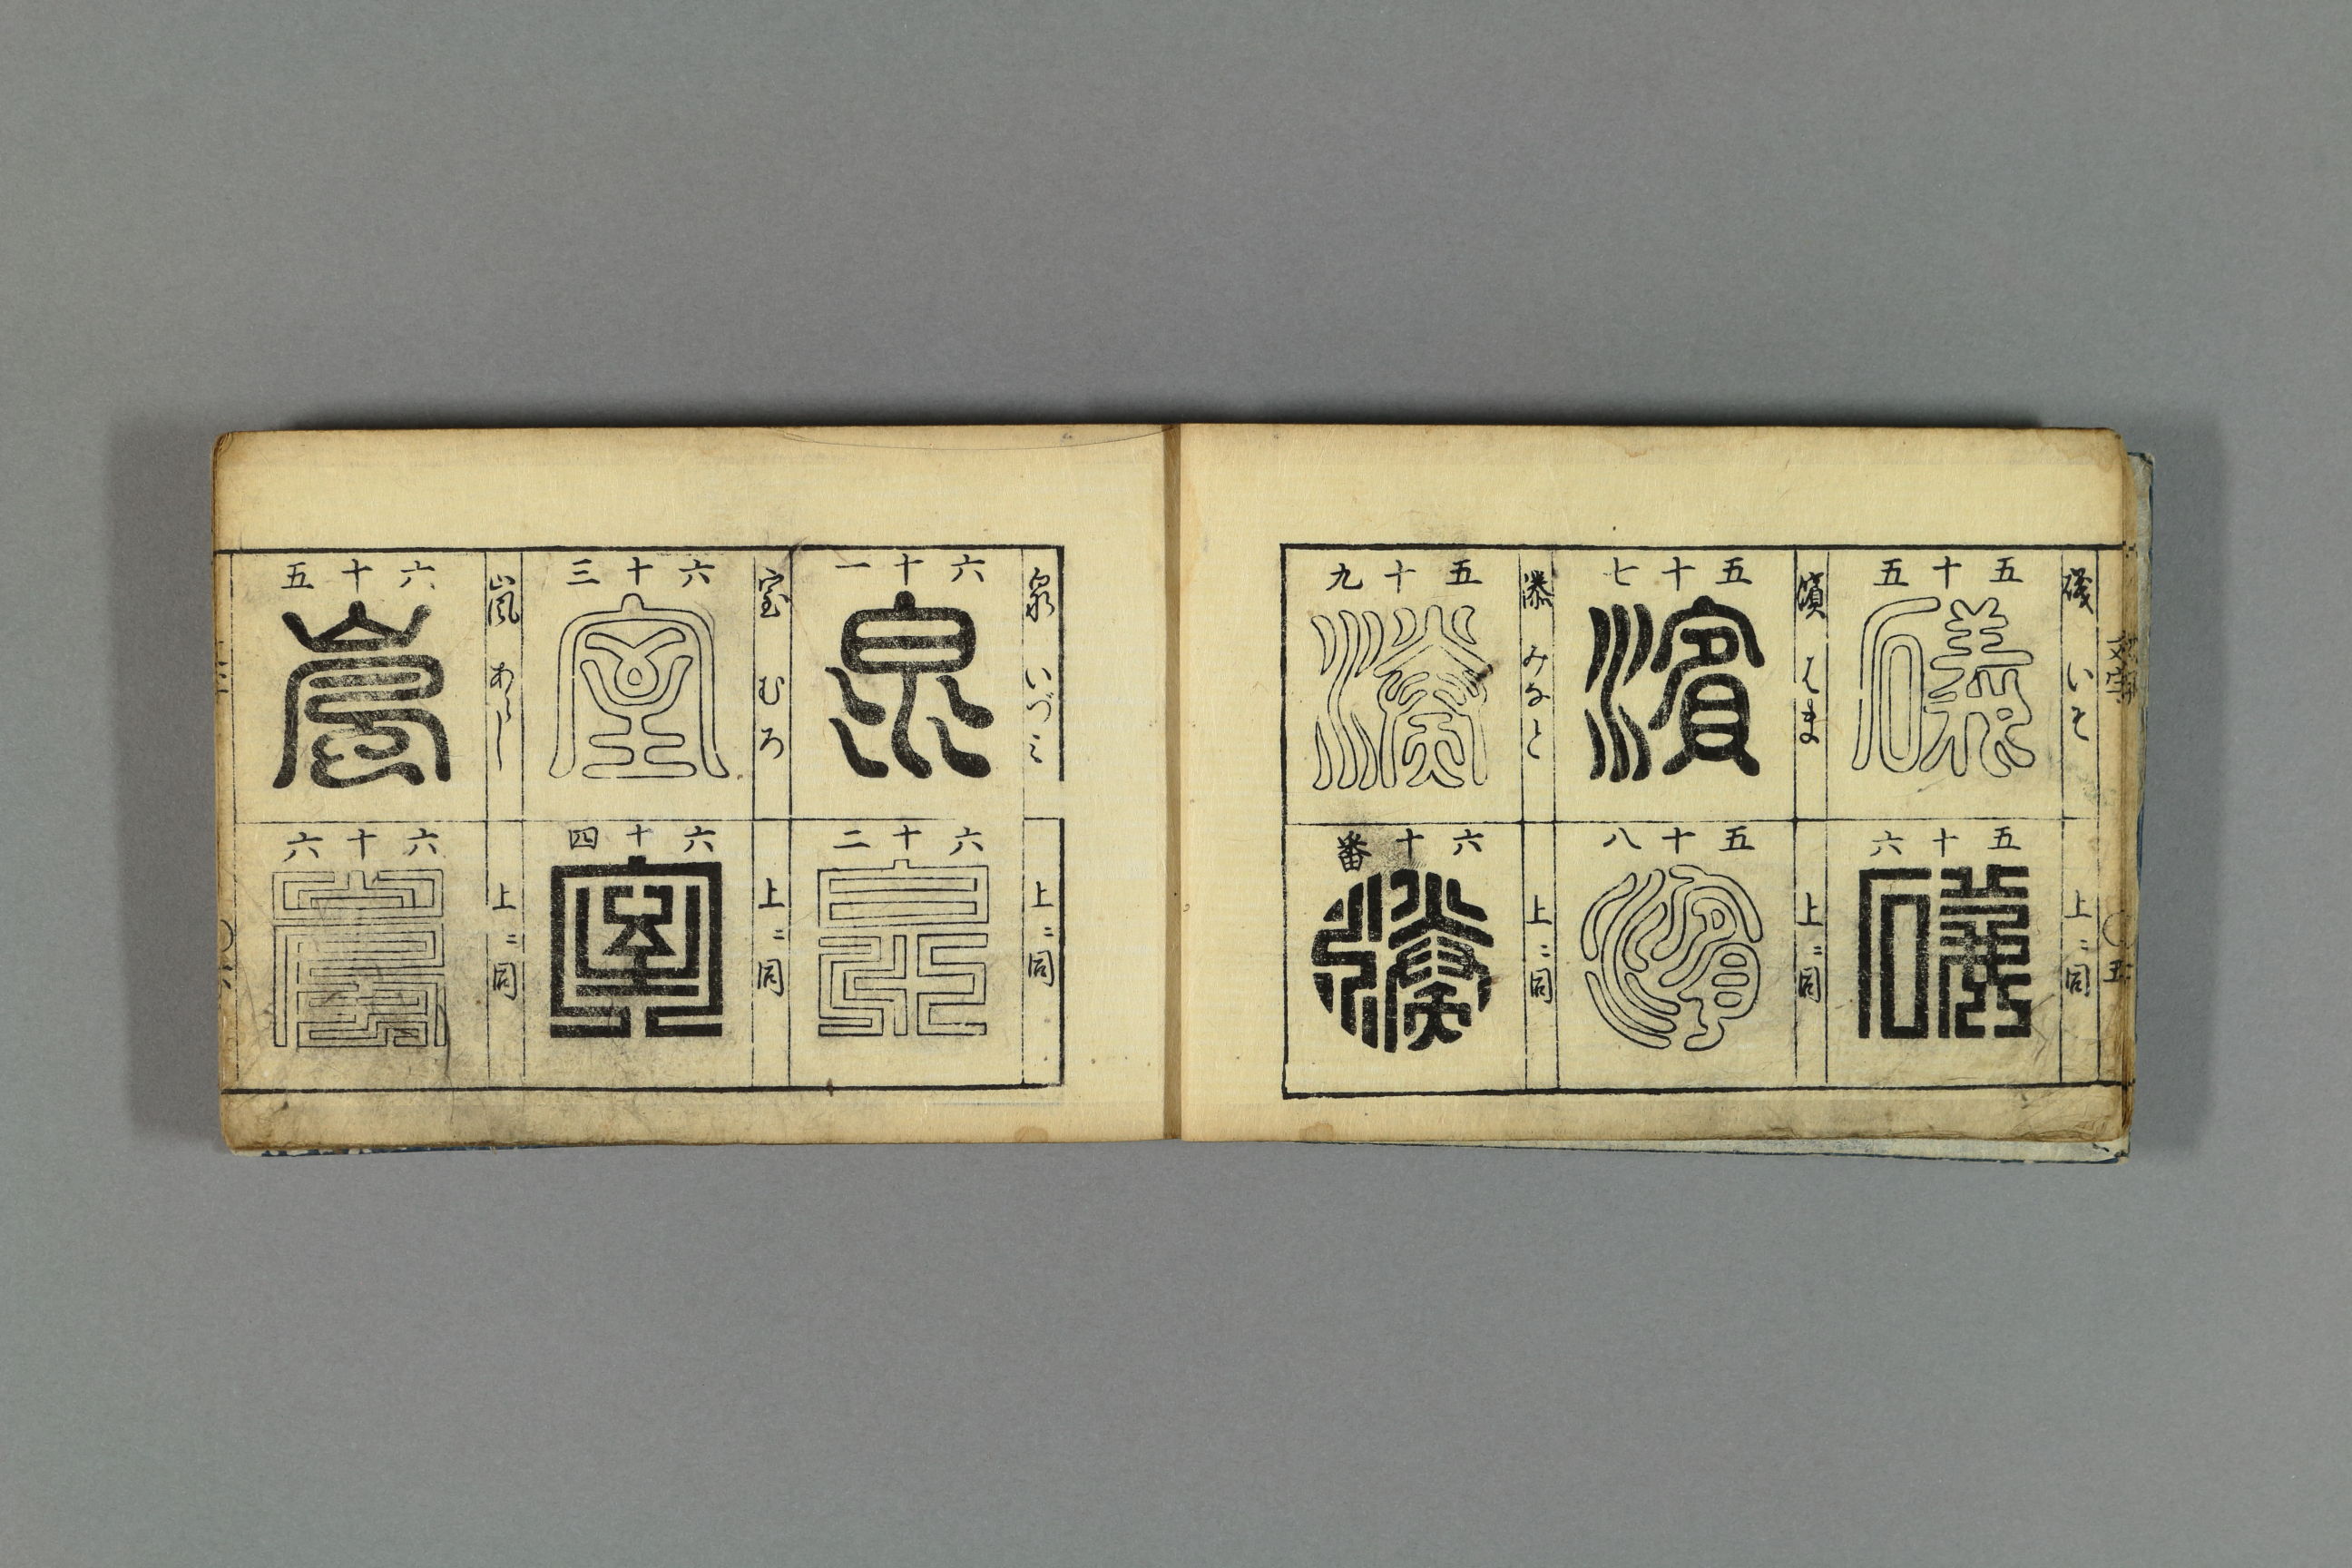 礒 いそ
五十五
礒
上ニ同
五十六
礒
濱 はま
五十七
濱
上ニ同
五十八
濱
湊 みなと
五十九
湊
上ニ同
六十番
湊
泉 いづミ
六十一
泉
上ニ同
六十二
泉
室 むろ
六十三
室
上ニ同
六十四
室
嵐 あらし
六十五
嵐
上ニ同
六十六
嵐